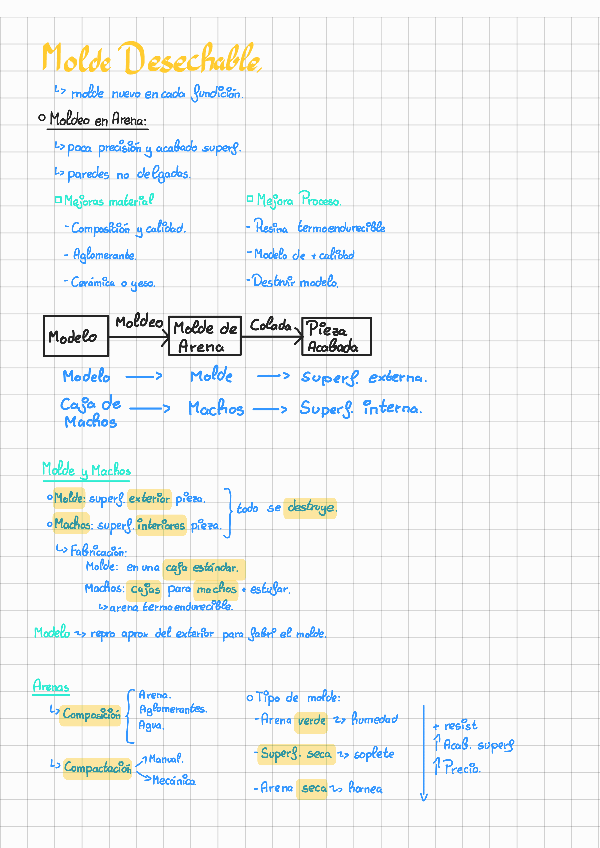 Molde Desechable.
↳ molde nuevo en cada fundición.
○ Moldeo en Arena:
↳ poca precisión y acabado superf.
↳ paredes no delgadas.
□ Mejoras material
- Composición y calidad.
- Aglomerante.
- Cerámica o yeso.
□ Mejora Proceso.
- Resina termoendurecible
- Modelo de + calidad
- Destruir modelo.
Modelo Moldeo → Molde de Arena Colada → Pieza Acabada
Modelo → Molde → Superf. externa.
Caja de Machos → Machos → Superf. interna.
Molde y Machos
○ Molde: superf. exterior pieza.
○ Machos: superf. interiores pieza.
todo se destruye.
↳ Fabricación:
Molde: en una caja estándar.
Machos: cajas para machos + estufar.
↳ arena termoendurecible.
Modelo ↝ repro aprox del exterior para fabri el molde.
Arenas
↳ Composición
Arena.
Aglomerantes.
Agua.
↳ Compactación
→ Manual.
→ Mecánica
○ Tipo de molde:
- Arena verde ↝ humedad
- Superf. seca ↝ soplete
- Arena seca ↝ hornea
+ resist
↑ Acab. superf
↑ Precio.